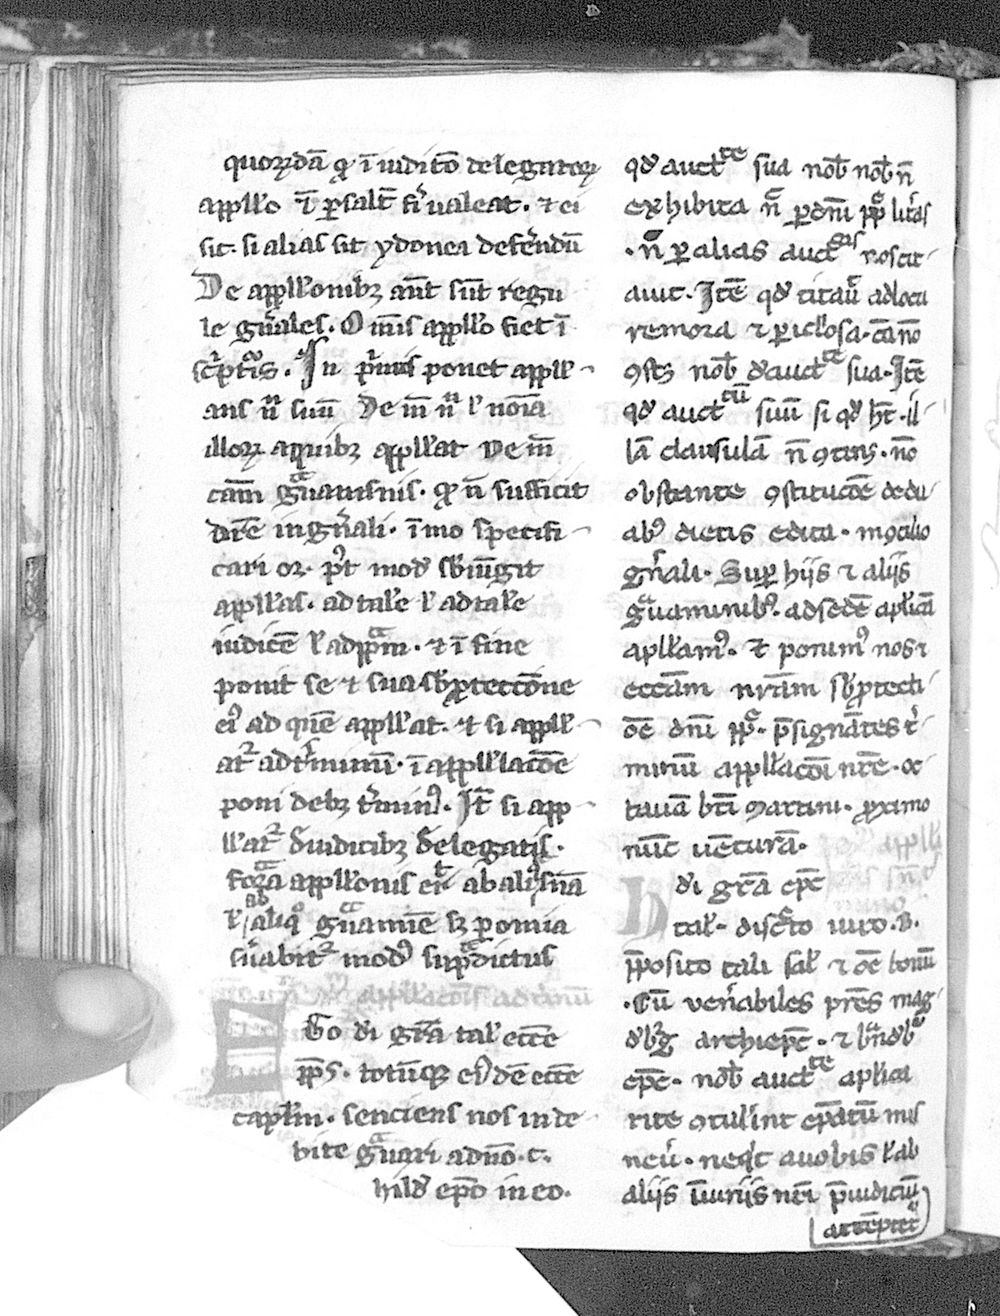 quorūdā ꝙ ī iudicō delegatoꝝ
appll'o ī ꝑ salt̄ fr̄ ualeat . ⁊ ei
sit . si alias sit ydonea defēndū
De appll'onibꝫ aūt sūt regu
le gn̄ales . Om̄is appll'o fiet ī
sc̄ptis . In p̄mis ponet appll'
ans nn̄ suū De in̄ nn̄ l' noīa
illoꝝ a quibꝫ appll'at De in̄
cām gͣuamīnis . ꝙ n̄ sufficit
dic̄e in gn̄ali . īmo specifi
cari oꝫ . pt̄ modꝰ sbiūgit
appll'as . ad tal'e l' ad tal'e
iudicē l' ad pp̄m . ⁊ ī fine
ponit se ⁊ sua sb̄ ꝓtectōne
eiꝰ ad quē appll'at . ⁊ si appll'
at᷑ ad t̄minū . ī appll'lacōe
poni debꝫ t̄minꝰ . It̄ si app
ll'at᷑ a iudicibꝫ delegatis .
forma appll'onis
l' ab aliqͦ gͣuamīe sꝫ ꝑ omīa
modꝰ sup̄dictus
appll'acōis ad t̄minū
di gr̄a tal' ecc̄e
pp̄s . totūqꝫ eiꝰdē ecc̄e
capl'm . senciens nos inde
bite gͣuari ad nō . t .
hild' ep̄o in eo .
qd' auct̄te sua nob̄ nob̄ n̄
exhibita n̄ ꝑ dn̄i pp̄ lrās
. n̄ ꝑ alias auct̄
Itē qd' citauͭ ad loca
remota ⁊ ꝑicl'osa . cā nō
ꝯstꝫ nob̄ d' auct̄te sua . Itē
qd' auct̄ suū si qd' ht̄ . il
lā clausulā n̄ ꝯtinꝫ . nō
obstante ꝯstitucōe de du
abꝰ dietis edita . in ꝯcilio
gn̄ali . Suꝑ hiis ⁊ aliis
gͣuaminibꝰ . ad sedē ap'licā
apll'amꝰ . ⁊ ponimꝰ nos ⁊
ecc̄am nr̄am sb̄ ꝓtecti
ōe dn̄i pp̄ . p̄signātes t̄
minū appll'acōi nr̄e . oc
tauā bt̄i martini . ꝓximo
nūc uēturā .
H di gr̄a ep̄c
tal' . disc̄to uiro . D .
p̄posito tali sal' ⁊ oē bonū
. Cū ven̄abiles pr̄es mag
d'bg̃ archiep̄c . ⁊
ep̄c . nob̄ auct̄te ap'lica
rite ꝯtul'int ep̄atū mis
. neqꝫ a uobis l' ab
aliis iuriis
attēptet᷑